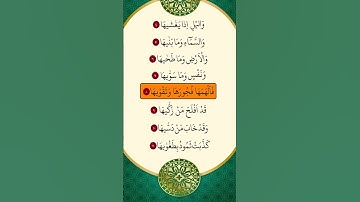 وَالَّيْلِ إِذَا يَغْشٰىهَا ۝٤
وَالسَّمَآءِ وَمَا بَنٰىهَا ۝٥
وَالْأَرْضِ وَمَا طَحٰىهَا ۝٦
وَنَفْسٍ وَمَا سَوّٰىهَا ۝٧
فَأَلْهَمَهَا فُجُورَهَا وَتَقْوٰىهَا ۝٨
قَدْ أَفْلَحَ مَنْ زَكّٰىهَا ۝٩
وَقَدْ خَابَ مَنْ دَسّٰىهَا ۝١٠
كَذَّبَتْ ثَمُودُ بِطَغْوٰىهَا ۝١١